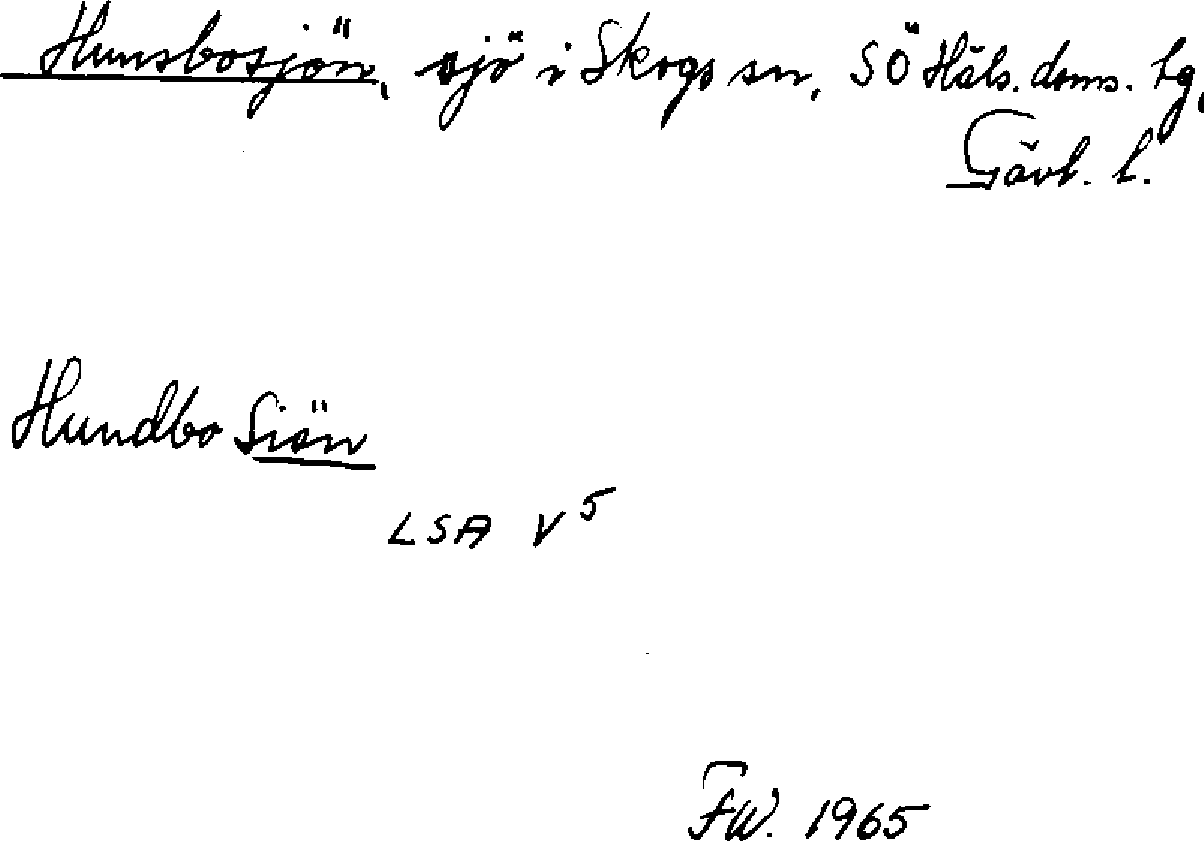 Hunsbosjön, sjö i Skogs sn, SÖ Häls. doms. tg,
Gävl. l.
Hundbo Siön
LSA V5
FW. 1965